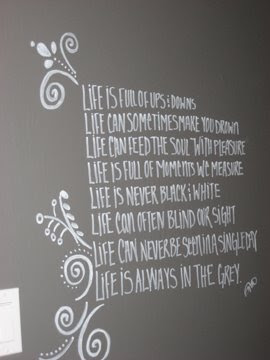 LIFE IS FULL OF UPS & DOWNS
LIFE CAN SOMETIMES MAKE YOU DROWN
LIFE CAN FEED THE SOUL WITH PLEASURE
LIFE IS FULL OF MOMENTS WE MEASURE
LIFE IS NEVER BLACK & WHITE
LIFE CAN OFTEN BLIND OUR SIGHT
LIFE CAN NEVER BE SEEN IN A SINGLE DAY
LIFE IS ALWAYS IN THE GREY.